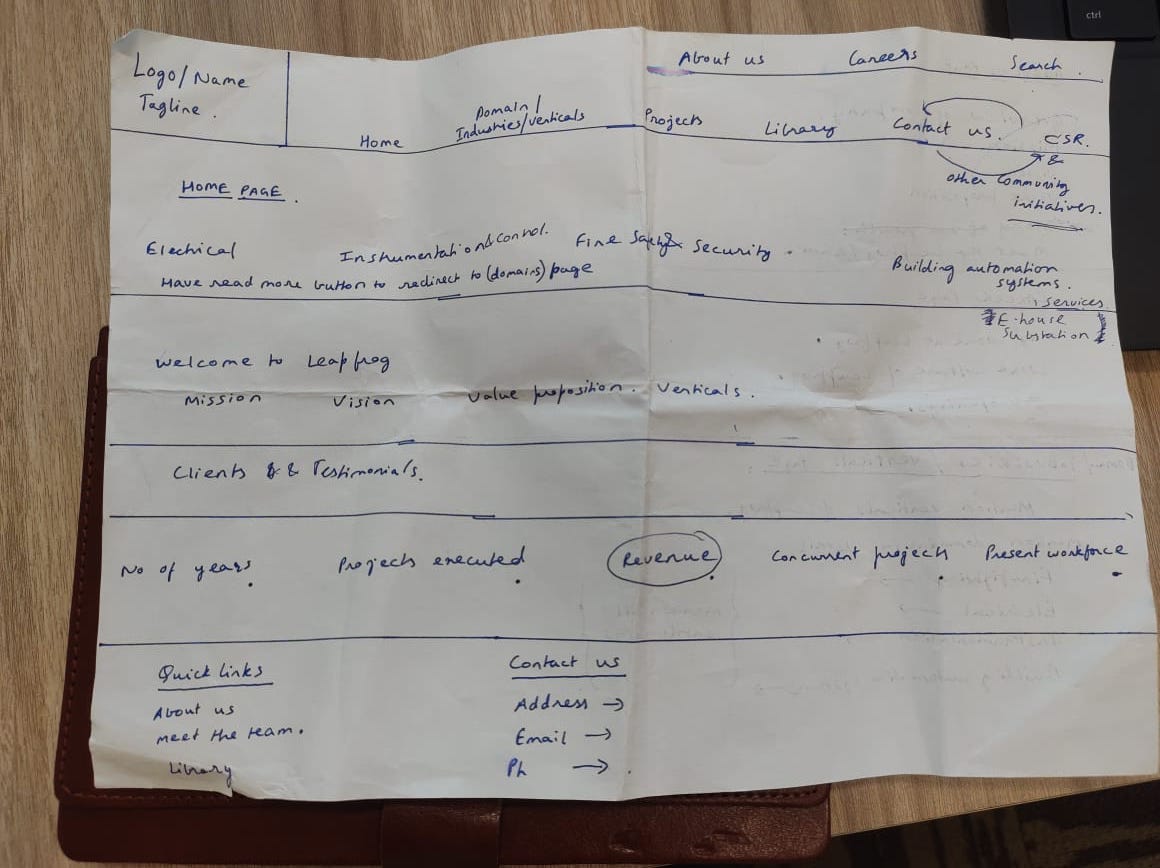 ctrl
Logo/Name
Tagline.
About us Careers Search.
Home Domain/
Industries/verticals Projects Library Contact us. CSR.
&
other Community
initiatives.
HOME PAGE.
Electrical Instrumentation & Control. Fire Safety & Security. Building automation
systems.
Have read more button to redirect to (domains) page
services
E-house
Substation
Welcome to Leapfrog
Mission Vision Value proposition. Verticals.
Clients & Testimonials.
No of years Projects executed Revenue Concurrent projects Present workforce
Quick links
About us
meet the team.
Library
Contact us
Address →
Email →
Ph →